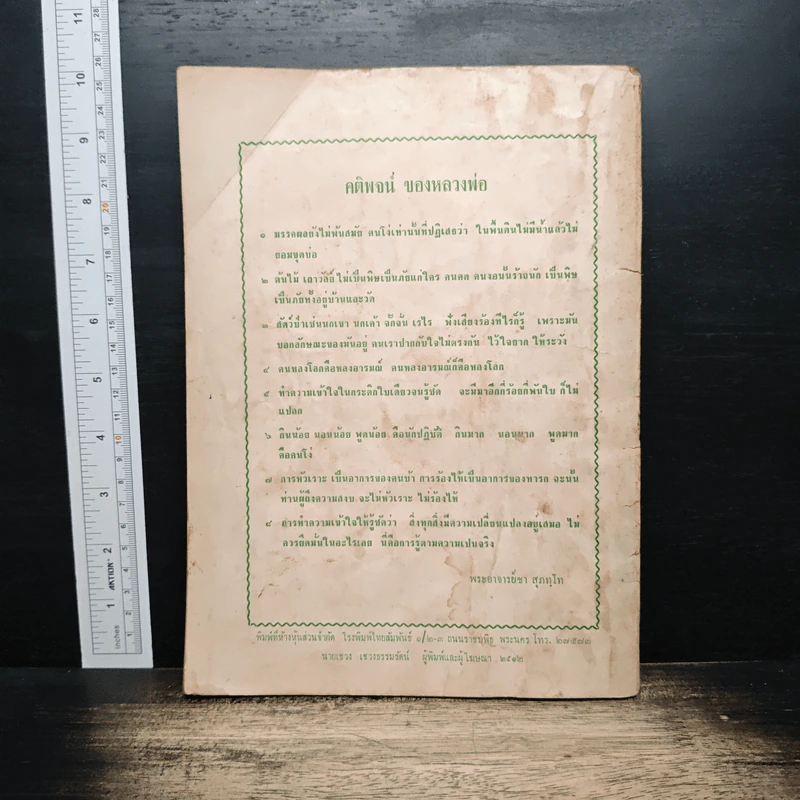 คติพจน์ ของหลวงพ่อ
๑ มรรคผลยังไม่พ้นสมัย คนโง่เท่านั้นที่ปฏิเสธว่า ในพื้นดินไม่มีน้ำแล้วไม่
ยอมขุดบ่อ
๒ ต้นไม้ เถาวัลย์ ไม่เป็นพิษเป็นภัยแก่ใคร คนคด คนงอนั้นร้ายนัก เป็นพิษ
เป็นภัยทั้งอยู่บ้านและวัด
๓ สัตว์ป่าเช่นนกเขา นกเค้า จั๊กจั่น เรไร ฟังเสียงร้องที่ไรก็รู้ เพราะมัน
บอกลักษณะของมันอยู่ คนเราปากกับใจไม่ตรงกัน ไว้ใจยาก ให้ระวัง
๔ คนหลงโลกคือหลงอารมณ์ คนหลงอารมณ์ก็คือหลงโลก
๕ ทำความเข้าใจในกระดิกใบเดียวจนรู้ชัด จะมีมาอีกกี่ร้อยกี่พันใบ ก็ไม่
แปลก
๖ กินน้อย นอนน้อย พูดน้อย คือนักปฏิบัติ กินมาก นอนมาก พูดมาก
คือคนโง่
๗ การหัวเราะ เป็นอาการของคนบ้า การร้องไห้เป็นอาการของทารก ฉะนั้น
ท่านผู้ถึงความสงบ จะไม่หัวเราะ ไม่ร้องไห้
๘ การทำความเข้าใจให้รู้ชัดว่า สิ่งทุกสิ่งมีความเปลี่ยนแปลงอยู่เสมอ ไม่
ควรยึดมั่นในอะไรเลย นี่คือการรู้ตามความเป็นจริง
พระอาจารย์ชา สุภทฺโท
พิมพ์ที่ห้างหุ้นส่วนจำกัด โรงพิมพ์ไทยสัมพันธ์ ๑/๒-๓ ถนนราชบพิธ พระนคร โทร. ๒๗๕๗๓
นายเชวง เชวงธรรมรัตน์ ผู้พิมพ์และผู้โฆษณา ๒๕๑๒
11
10
9
8
7
6
5
4
3
2
1
28
27
26
25
24
23
22
21
20
19
18
17
16
15
14
13
12
11
10
9
8
7
6
5
4
3
2
1